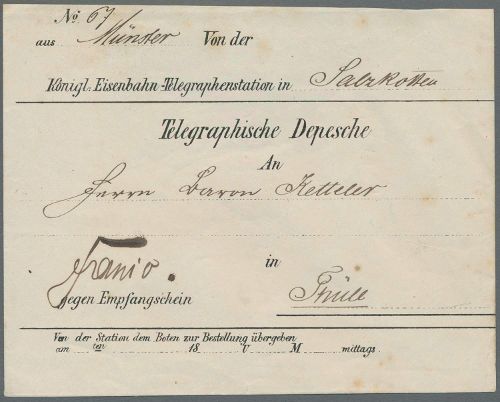 No. 67
aus Münster Von der
Königl. Eisenbahn-Telegraphenstation in Salzkotten
Telegraphische Depesche
An
Herrn Baron Ketteler
franco. in
gegen Empfangschein Thüle
Von der Station dem Boten zur Bestellung übergeben
am ten 18 U M mittags.